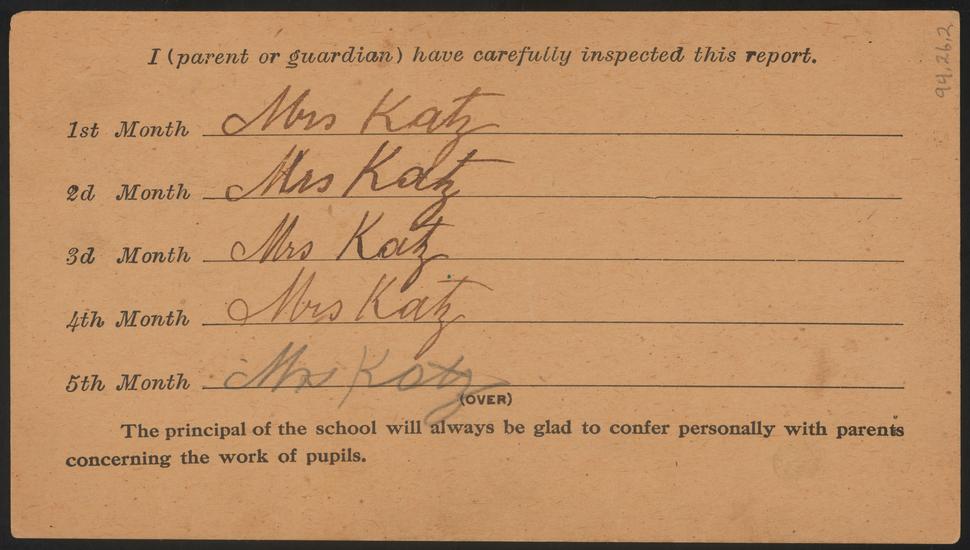 I (parent or guardian) have carefully inspected this report.
1st Month Mrs Katz
2d Month Mrs Katz
3d Month Mrs Katz
4th Month Mrs Katz
5th Month Mrs Katz
(OVER)
The principal of the school will always be glad to confer personally with parents
concerning the work of pupils.
94.262